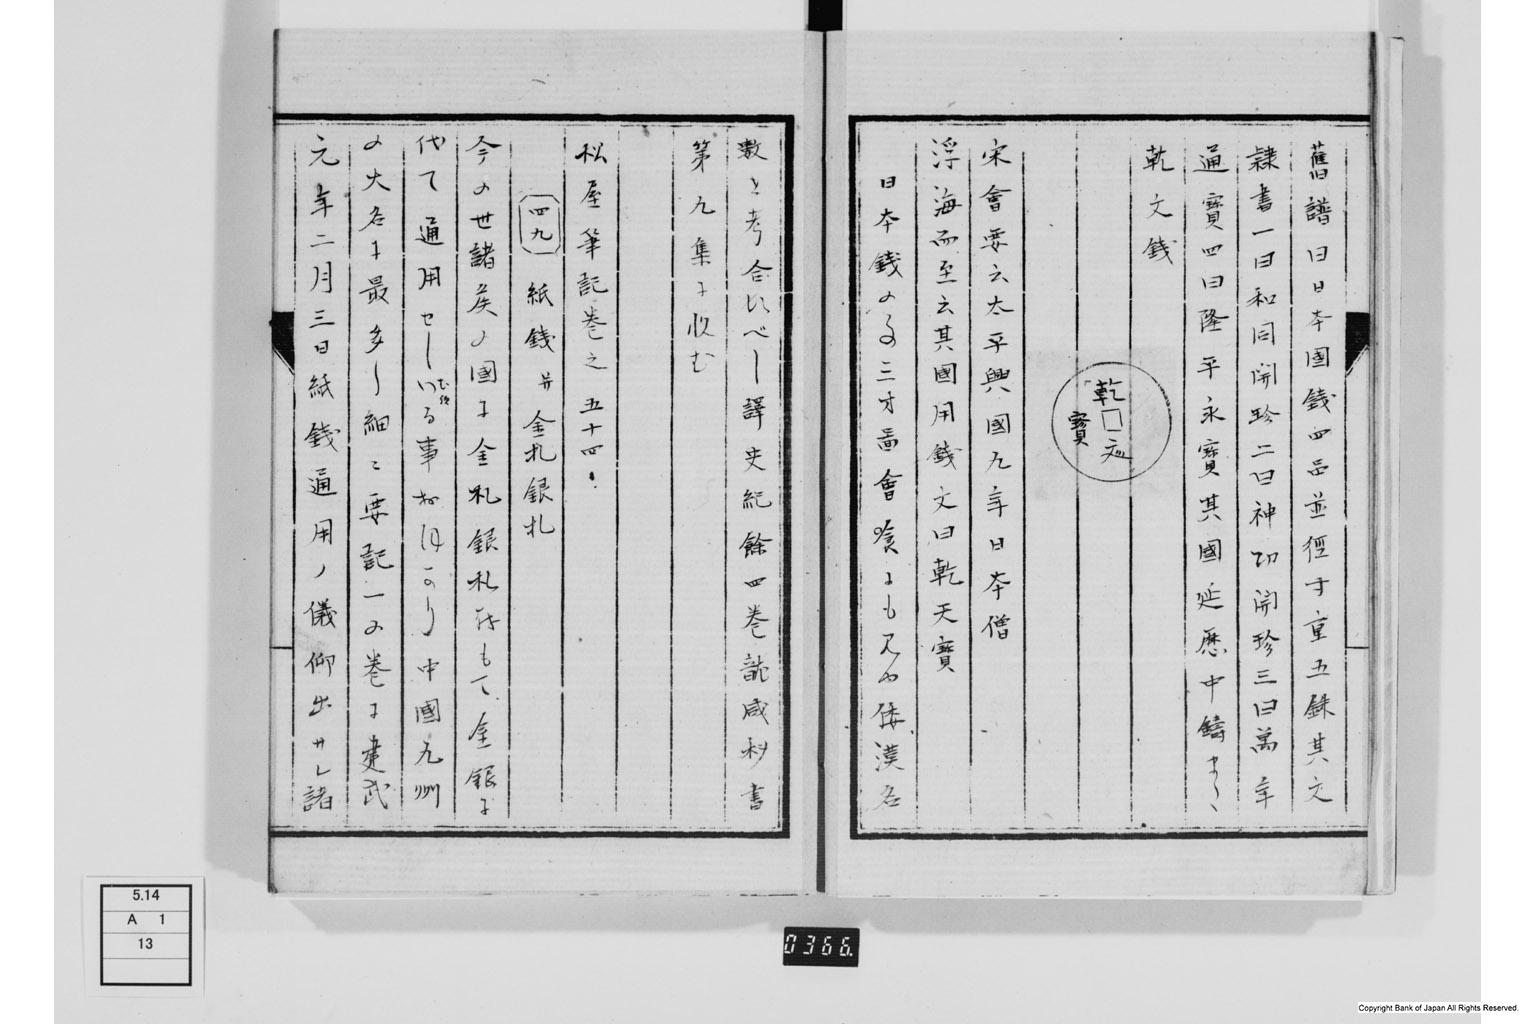 舊譜曰日本國錢四品並徑寸重五銖其文
隷書一曰和同開珍二曰神功開珍三曰萬年
通寶四曰隆平永寶其國延歷中鑄
乾文錢
乾文
寶
宋會要云太平興國九年日本僧
浮海而至云其國用錢文曰乾天寶
日本錢の事三才圖會
にも見ゆ倭漢名
數と考合すべし譯史紀餘四卷
書
第九集に收む
松屋筆記卷之五十四
四九 紙錢并金札銀札
今の世諸侯の國に金札銀札をもて金銀に
代て通用せしむる事おほかり中國九州
の大名に最多し細々要記一の卷に建武
元年二月三日紙錢通用ノ儀仰出サレ諸
5.14
A 1
13
0366
Copyright Bank of Japan All Rights Reserved.